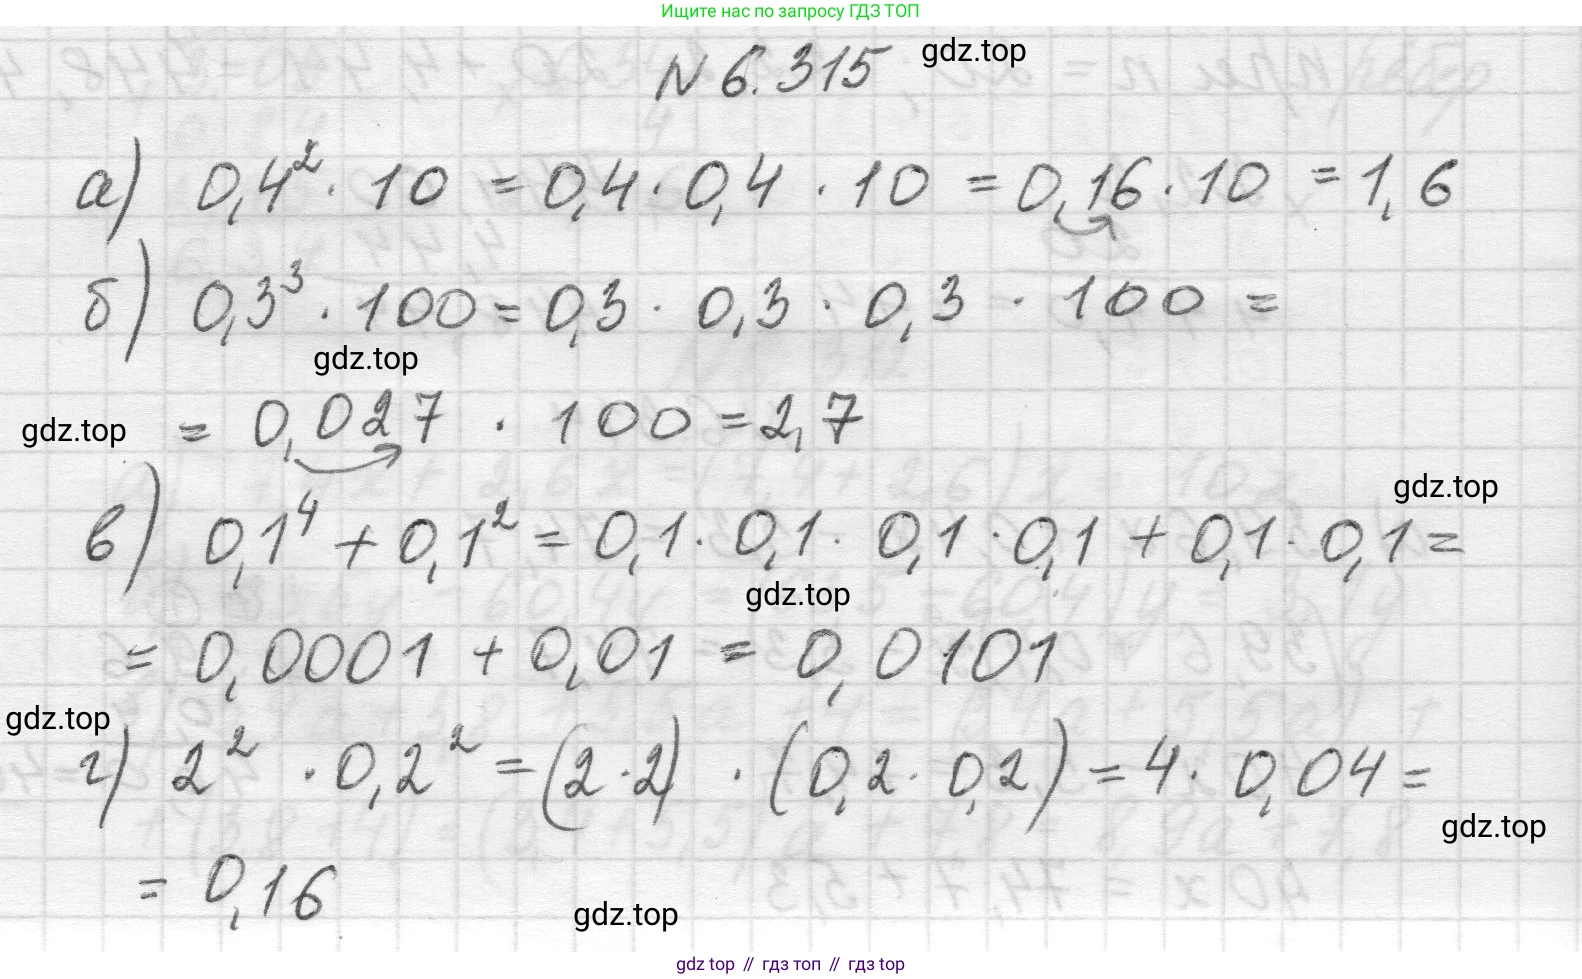 Ищите нас по запросу ГДЗ ТОП
N 6.315 gdz.top
а) 0,4² · 10 = 0,4 · 0,4 · 10 = 0,16 · 10 = 1,6
б) 0,3³ · 100 = 0,3 · 0,3 · 0,3 · 100 =
gdz.top
gdz.top = 0,027 · 100 = 2,7
gdz.top
в) 0,1⁴ + 0,1² = 0,1 · 0,1 · 0,1 · 0,1 + 0,1 · 0,1 =
gdz.top
= 0,0001 + 0,01 = 0,0101
gdz.top
г) 2² · 0,2² = (2 · 2) · (0,2 · 0,2) = 4 · 0,04 =
gdz.top
= 0,16
gdz.top
gdz top // гдз топ // гдз top